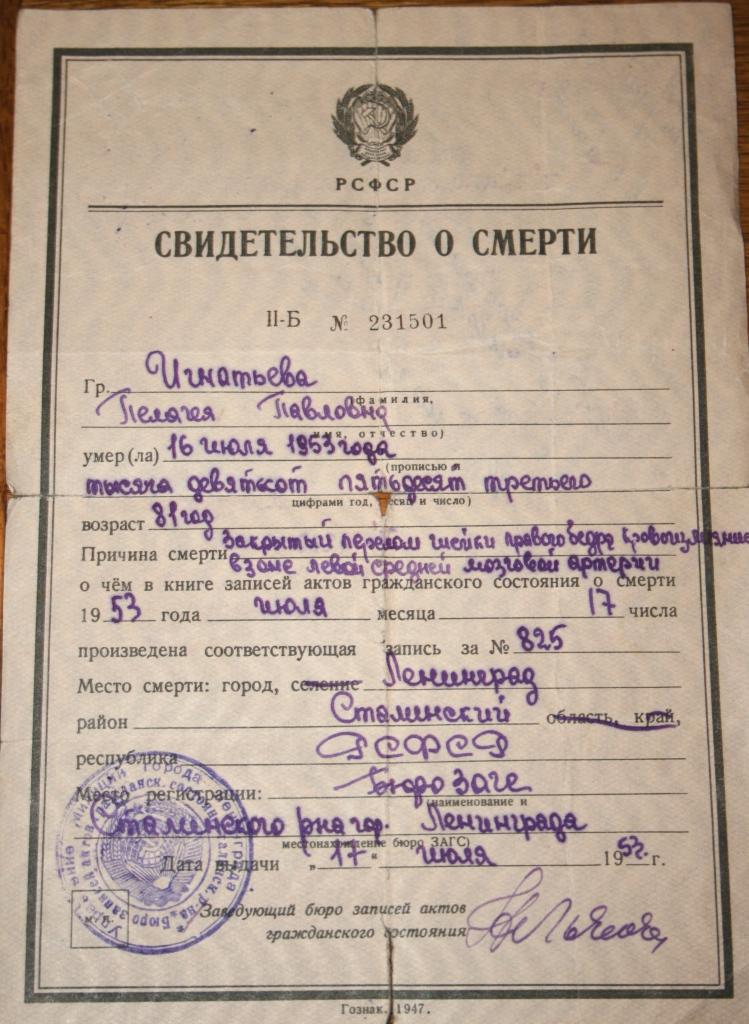 РСФСР
СВИДЕТЕЛЬСТВО О СМЕРТИ
II-Б № 231501
Гр. Игнатьева
(фамилия,
Пелагея Павловна
имя, отчество)
умер(ла) 16 июля 1953 года
(прописью и
тысяча девятьсот пятьдесят третьего
цифрами год, месяц и число)
возраст 81 год
Причина смерти закрытый перелом шейки правого бедра кровоизлияние
в зоне левой средней мозговой артерии
о чём в книге записей актов гражданского состояния о смерти
1953 года июля месяца 17 числа
произведена соответствующая запись за № 825
Место смерти: город, селение Ленинград
район Сталинский область, край,
республика РСФСР
Место регистрации: Бюро Загс
(наименование и
Сталинского р-на гор. Ленинграда
местонахождение бюро ЗАГС)
Дата выдачи „17“ июля 1953 г.
Заведующий бюро записей актов
гражданского состояния
М. П.
Гознак. 1947.